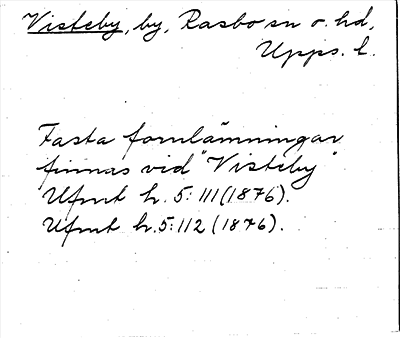 Visteby, by, Rasbo sn o. hd,
Upps. l.
Fasta fornlämningar
finnas vid "Visteby"
Ufmt h. 5: 111 (1876).
Ufmt h. 5: 112 (1876).